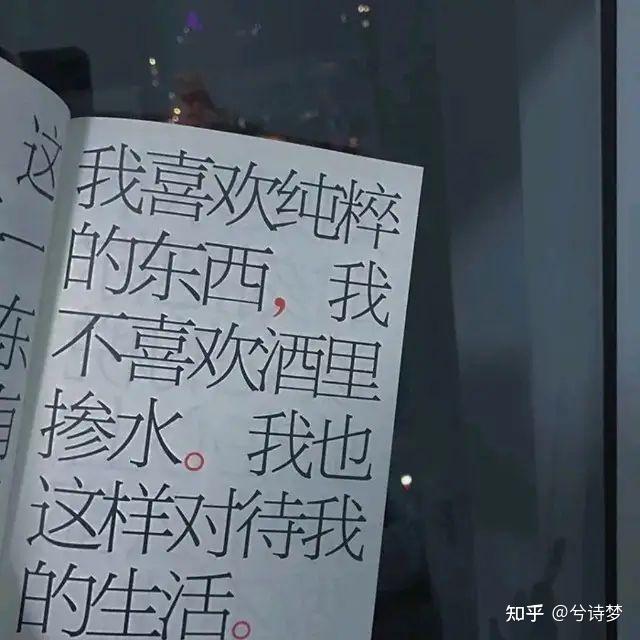 我喜欢纯粹
的东西，我
不喜欢酒里
掺水。我也
这样对待我
的生活。
这
一
知乎 @兮诗梦